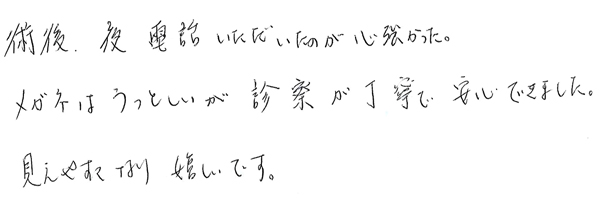 術後、夜電話いただいたのが心強かった。
メガネはうっとしいが診察が丁寧で安心できました。
見えやすくなり嬉しいです。